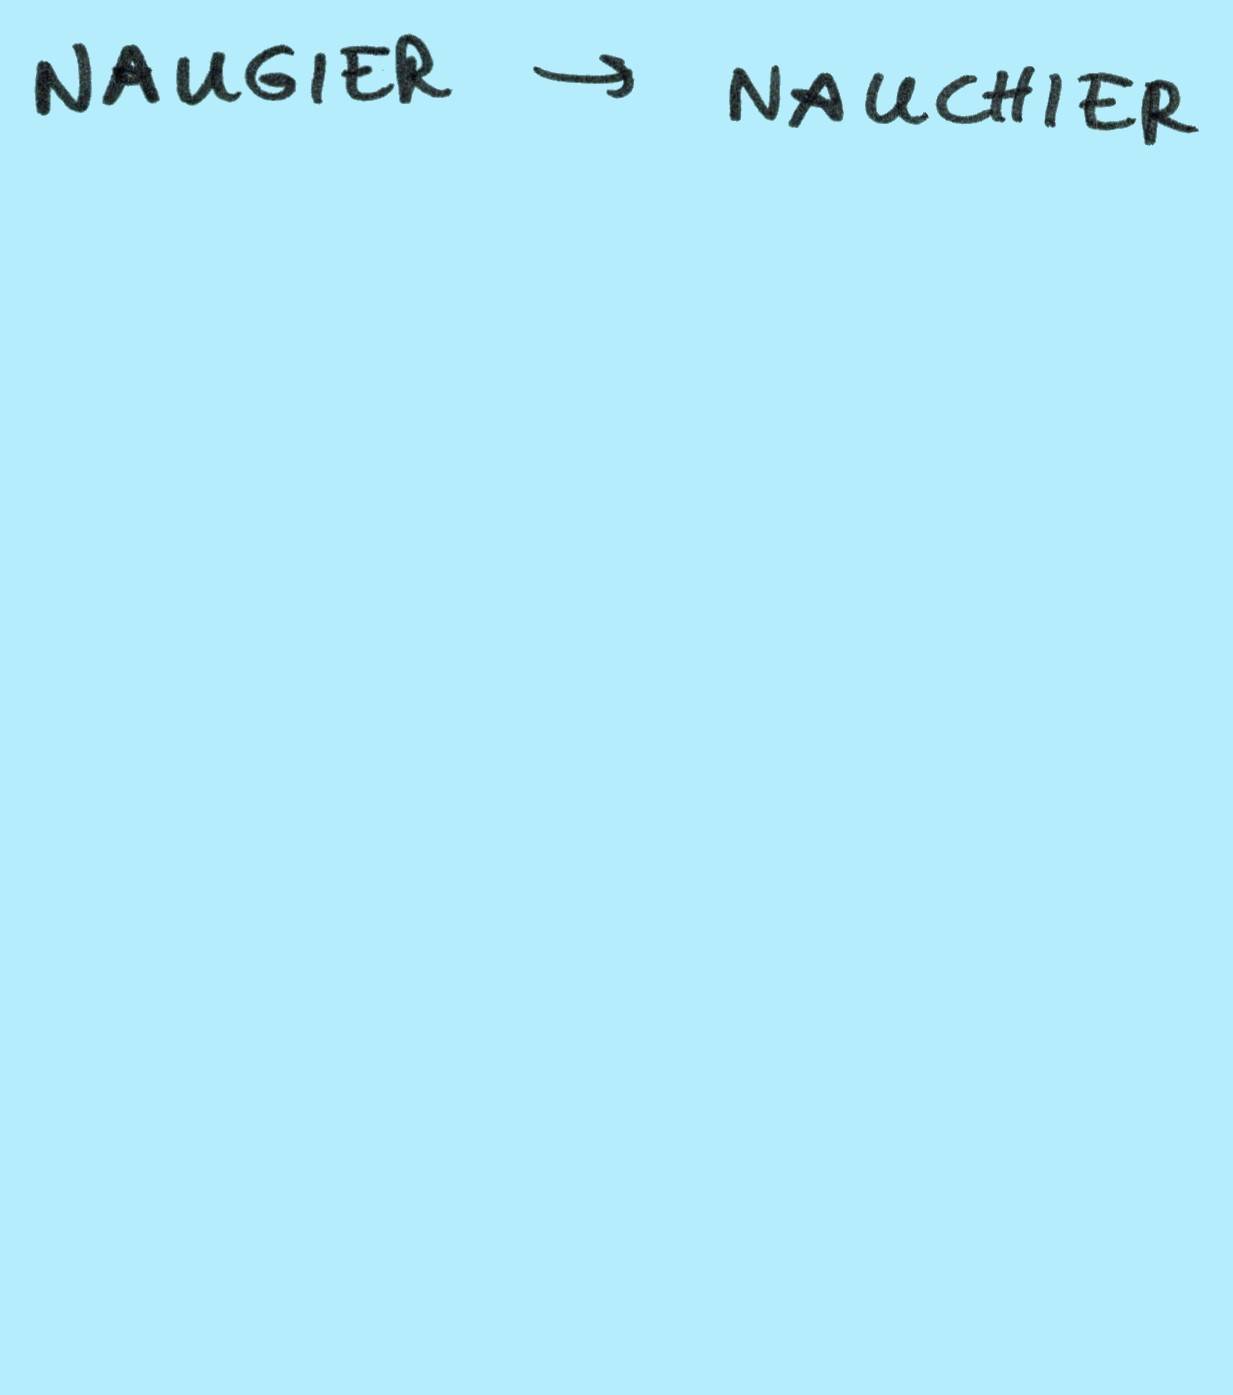 NAUGIER → NAUCHIER